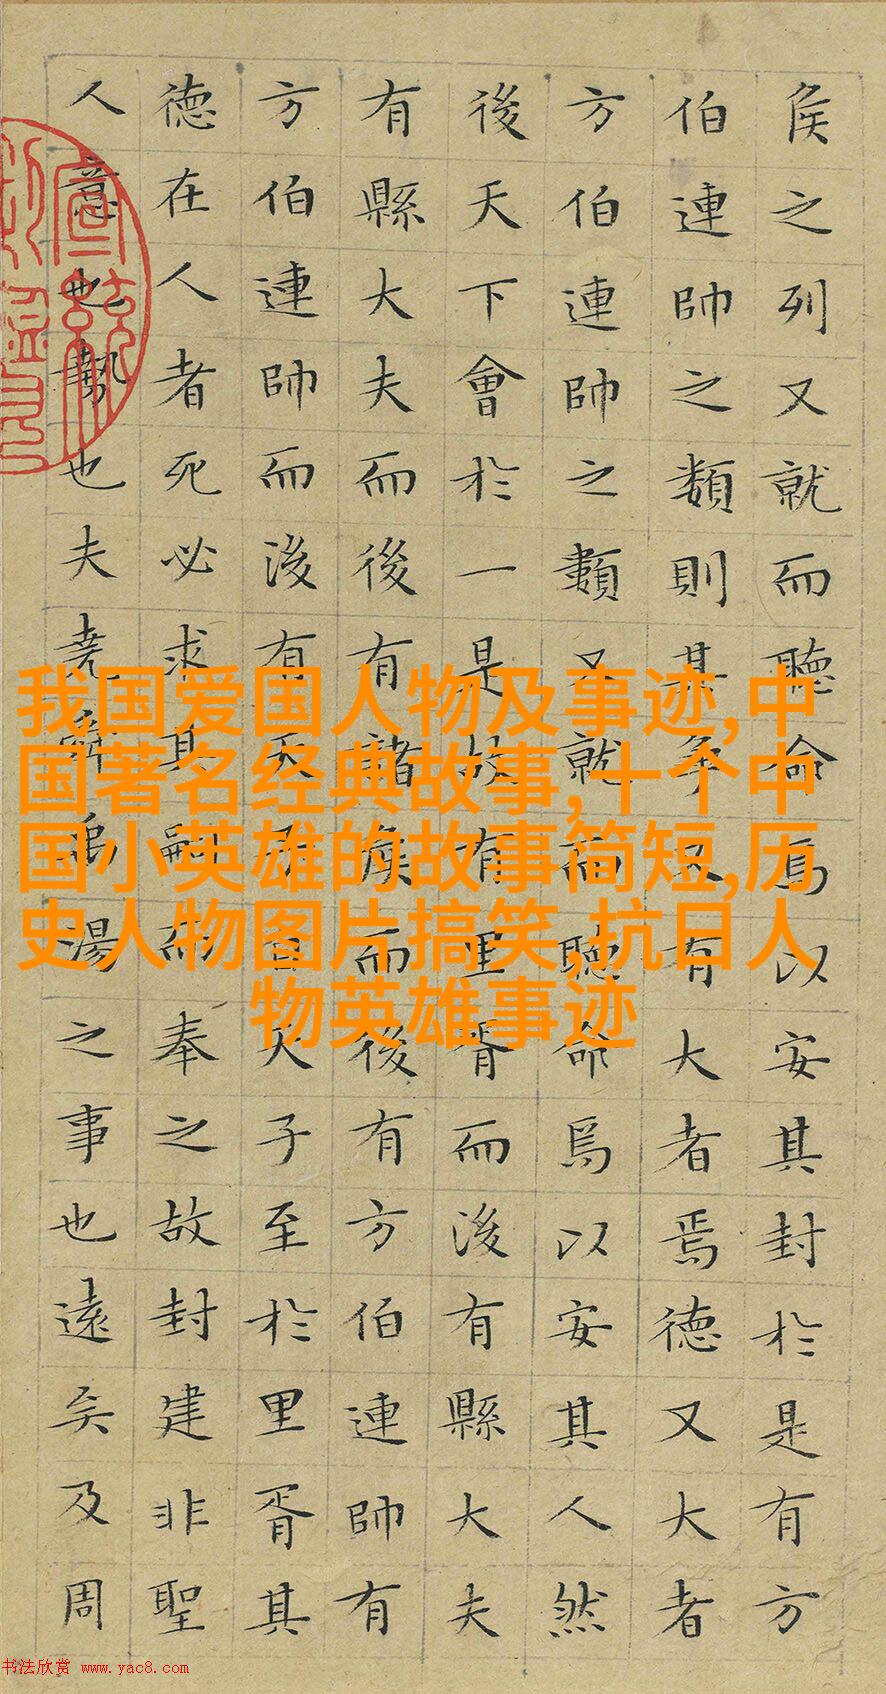 侯之列又就而聽命焉以安其封於是有方
伯連帥之類則其爭又有大者焉德又大者
方伯連帥之類又就而聽命焉以安其人然
後天下會於一是故有里胥而後有縣大夫
有縣大夫而後有諸侯而後有方伯連帥有
方伯連帥而後有天子自天子至於里胥其
德在人者死必求其嗣而奉之故封建非聖
人意也勢也夫堯舜禹湯之事也遠矣及周
我国爱国人物及事迹,中
国著名经典故事,十个中
国小英雄的故事简短,历
史人物图片搞笑,抗日人
物英雄事迹
书法欣赏 www.yac8.com